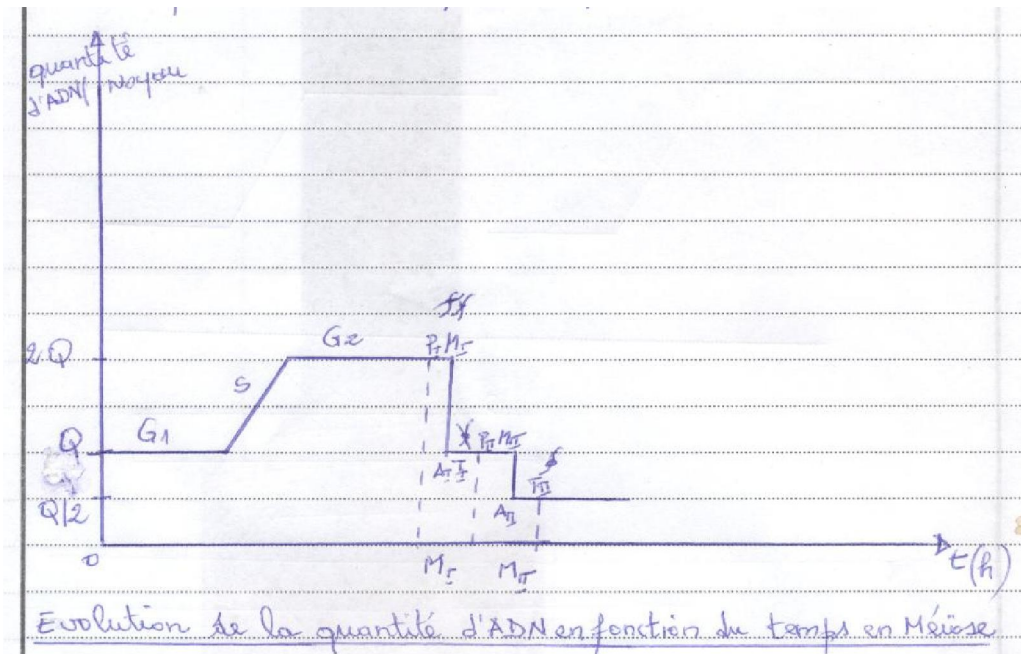 quantité
d'ADN/ Noyau
2Q
G2
PI MI
S
Q
G1
PII MII
AI TI
TII
Q/2
AII
0
MI
MII
t(h)
Evolution de la quantité d'ADN en fonction du temps en Méïose